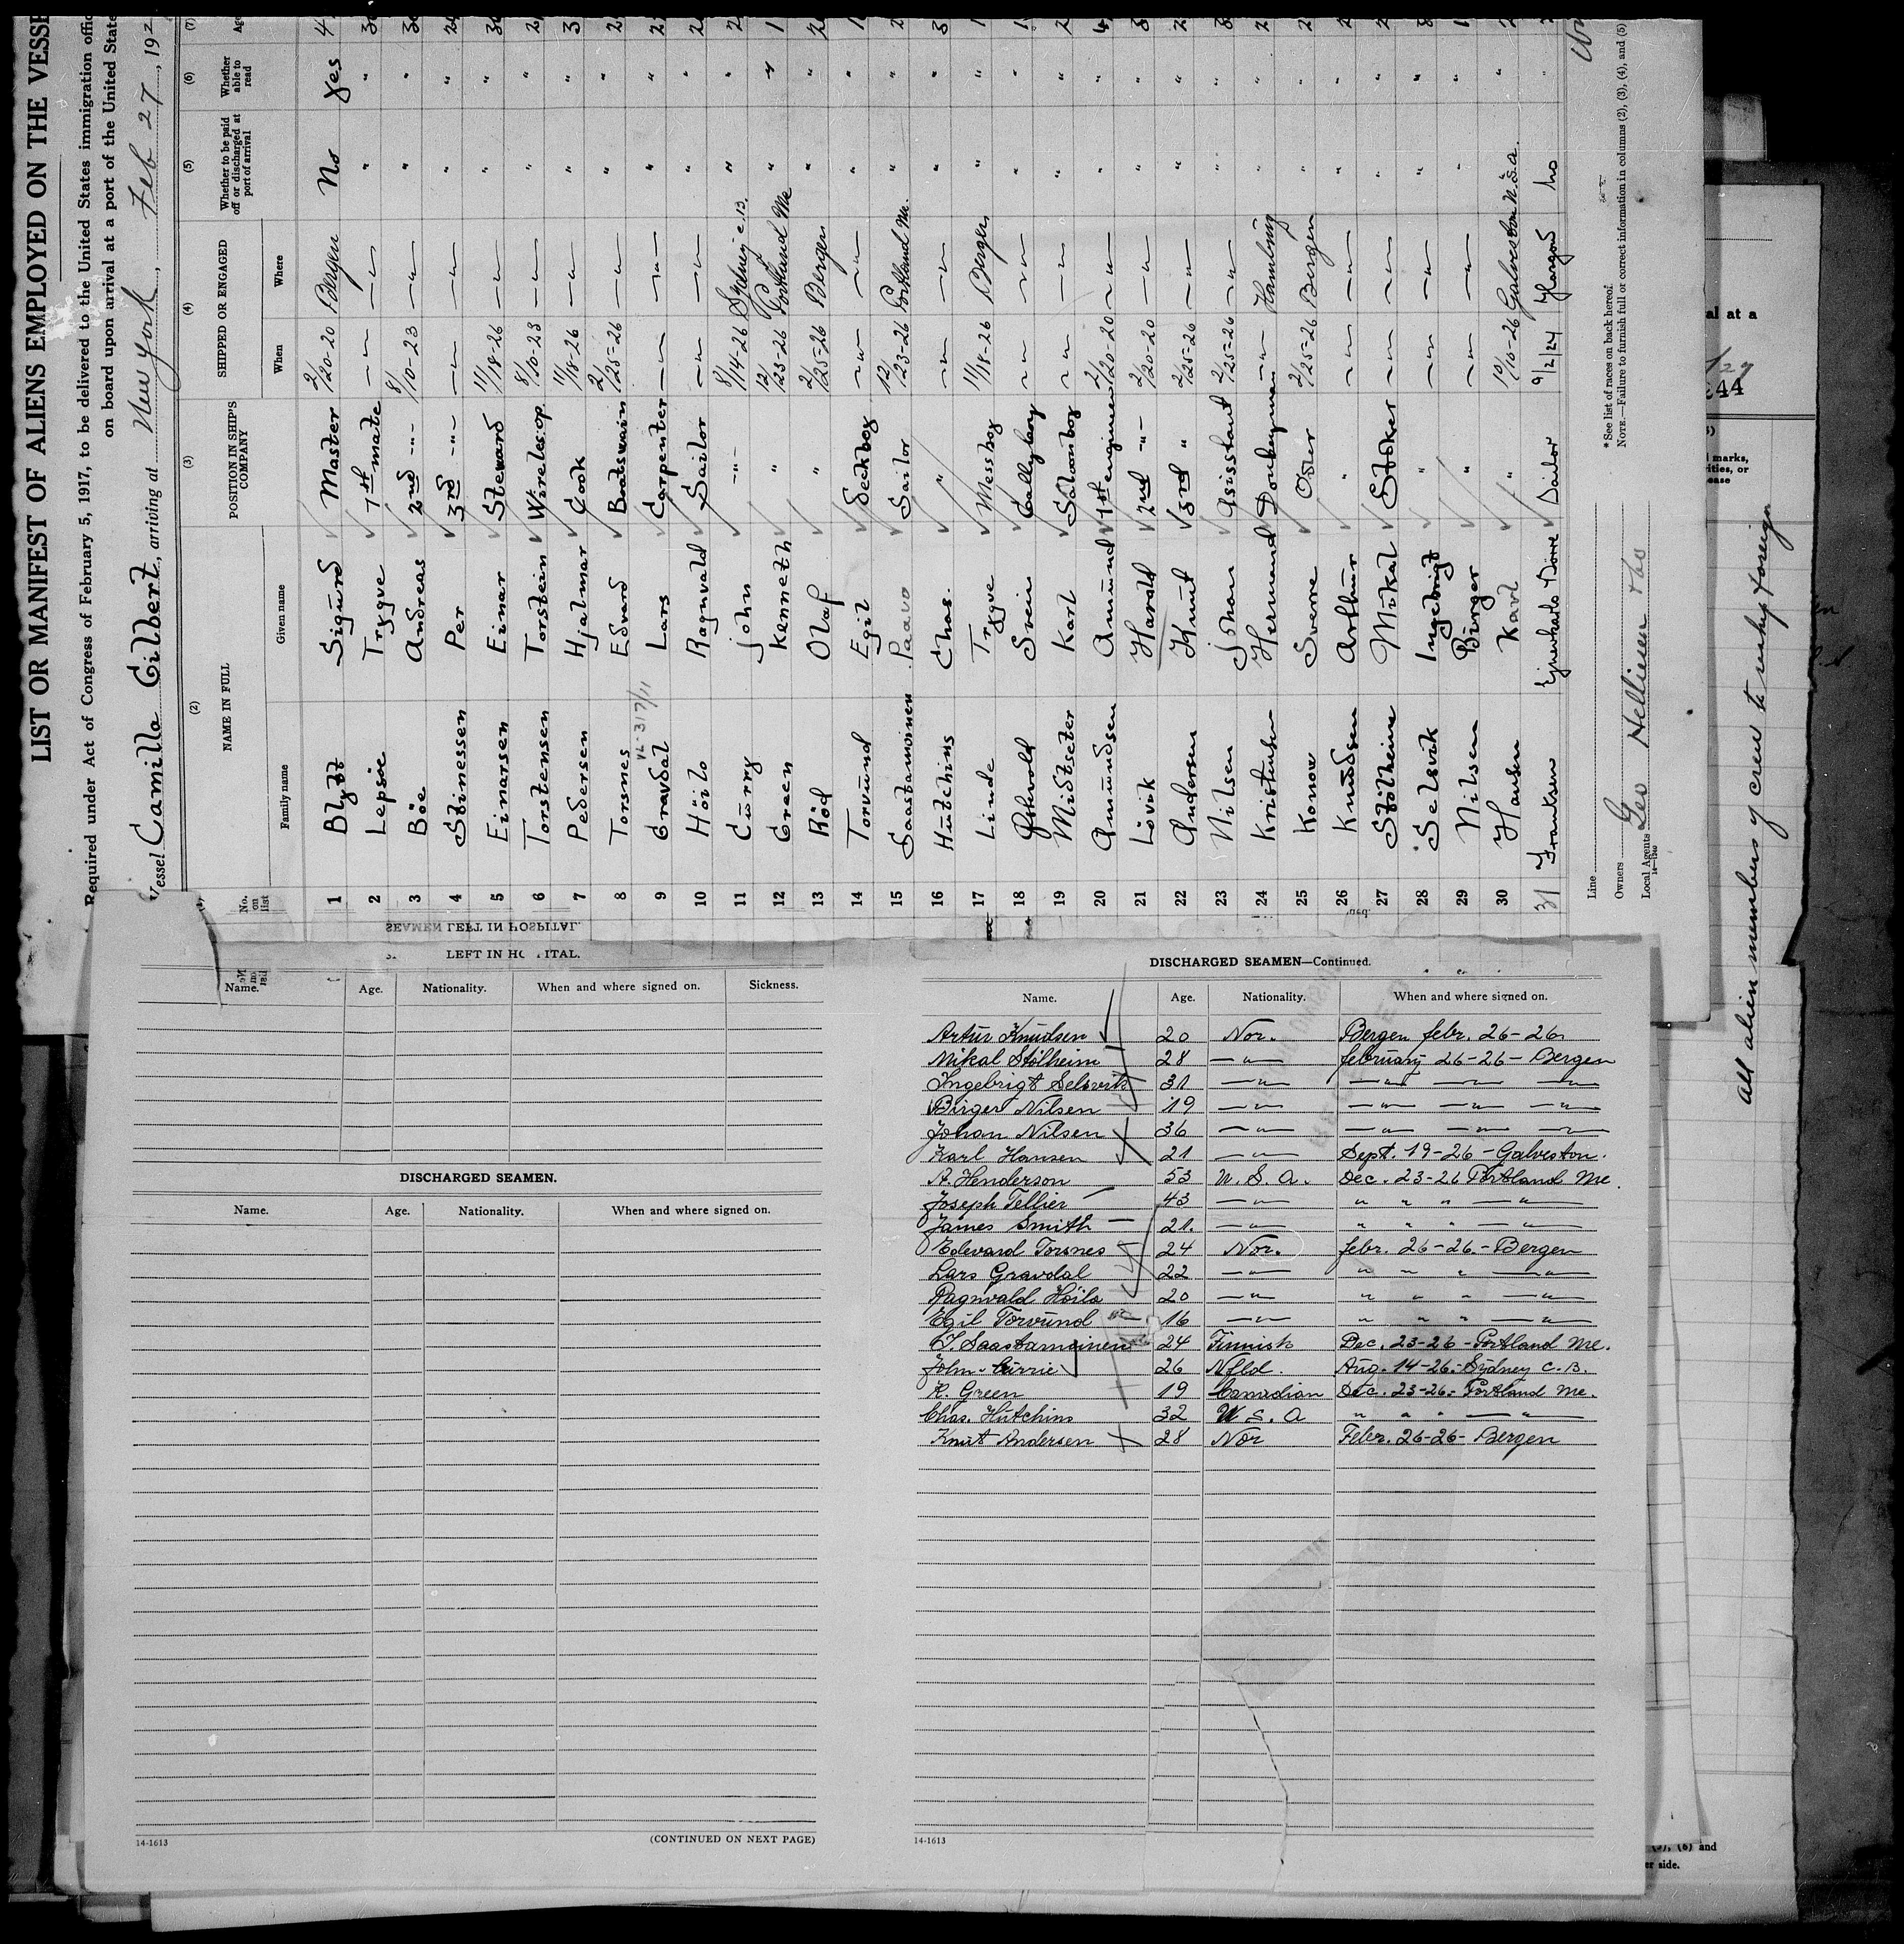 LIST OR MANIFEST OF ALIENS EMPLOYED ON THE VESSE
Required under Act of Congress of February 5, 1917, to be delivered to the United States immigration offic
on board upon arrival at a port of the United State
Vessel Camilla Gilbert, arriving at New York, Feb 27, 192
(2) (3) (4) (5) (6) (7)
No. on list NAME IN FULL POSITION IN SHIP'S COMPANY SHIPPED OR ENGAGED Whether to be paid off or discharged at port of arrival Whether able to read Ag
Family name Given name When Where
1 Blytt Sigurd Master 2/20-20 Bergen No Yes
2 Lepsöe Trygve 1st mate —"— —"— " "
3 Böe Andreas 2nd -"- 8/10-23 —"— " "
4 Stinessen Per 3rd -"- —"— —"— " "
5 Einarsen Einar Steward 11/18-26 —"— " "
6 Torstensen Torstein Wireless op. 8/10-23 —"— " "
7 Pedersen Hjalmar Cook 11/18-26 —"— " "
8 Torsnes Edvard Boatswain 2/25-26 —"— " "
9 Gravdal Lars Carpenter —"— —"— " "
10 Höilo Ragnvald Sailor —"— —"— " "
11 Curry John -"- 8/14-26 Sydney c.B. " "
12 Green Kenneth " 12/23-26 Portland Me " "
13 Röd Olaf " 2/25-26 Bergen " "
14 Torvund Egil Deckboy —"— —"— " "
15 Saastamoinen Paavo Sailor 12/23-26 Portland Me. " "
16 Hutchins Chas. " —"— —"— " "
17 Linde Trygve Messboy 11/18-26 Bergen " "
18 Svein Gallyboy —"— —"— " "
19 Midtseter Karl Saloonboy —"— —"— " "
20 Amundsen Amund 1st engineer 2/20-20 —"— " "
21 Lövik Harald 2nd -"- 2/20-20 —"— " "
22 Andersen Knut 3rd " 2/25-26 —"— " "
23 Nilsen Johan Asisstant 2/25-26 —"— " "
24 Kristensen Hermand Donkeyman —"— Hamburg " "
25 Konow Sverre Oiler 2/25-26 Bergen " "
26 Knudsen Arthur " —"— —"— " "
27 Stölheim Mikal Stoker —"— —"— " "
28 Selsvik Ingebrigt " —"— —"— " "
29 Nilsen Birger " —"— —"— " "
30 Hansen Karl " 10/10-26 Galveston U.S.a. " "
31 Frantsen Sailor 9/2/24 No "
Line
Owners
Local Agents Geo
14-1240
* See list of races on back hereof.
NOTE.—Failure to furnish full or correct information in columns (2), (3), (4), and (5)
all alien members of crew to reship foreign
al at a
44
marks,
SEAMEN LEFT IN HOSPITAL.
LEFT IN HO ITAL.
Name. Age. Nationality. When and where signed on. Sickness.
DISCHARGED SEAMEN.
Name. Age. Nationality. When and where signed on.
14-1613 (CONTINUED ON NEXT PAGE)
DISCHARGED SEAMEN—Continued.
Name. Age. Nationality. When and where signed on.
Artur Knudsen 20 Nor. Bergen febr. 26-26
Mikal Stölheim 28 —"— february 26-26- Bergen
Ingebrigt Selsvik 31 —"— —"— —"— —"—
Birger Nilsen 19 —"— —"— —"— —"—
Johan Nilsen 36 —"— —"— —"— —"—
Karl Hansen 21 —"— Sept. 19-26-Galveston.
A. Henderson 53 U.S.a. Dec. 23-26 Portland Me.
Joseph Tellier 43 —"— " " " —"—
James Smith 21. —"— " " " —"—
Edevard Torsnes 24 Nor. febr. 26-26.-Bergen
Lars Gravdal 22 —"— " " " —"—
Ragnvald Höilo 20 —"— " " " —"—
Egil Torvund 16 —"— " " " —"—
Saastamoinen 24 Finnish Dec. 23-26-Portland Me.
John Currie 26 Nfld. Aug. 14-26-Sydney C.B.
K. Green 19 Canadian Dec. 23-26-Portland Me.
Chas. Hutchins 32 U.S.A " " " —"—
Knut Andersen 28 Nor Febr. 26-26- Bergen
14-1613
(5), (6) and
er side.